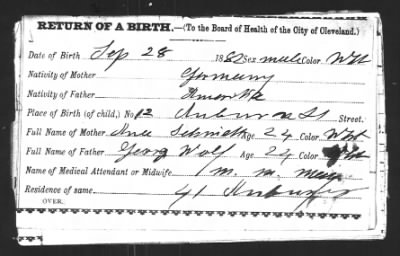 RETURN OF A BIRTH.—(To the Board of Health of the City of Cleveland.)
Date of Birth Sep 28 188 Sex male Color Wht
Nativity of Mother Germany
Nativity of Father Amerika
Place of Birth (of child,) No 12 Auburn St Street.
Full Name of Mother Schmidt Age 24 Color Wht
Full Name of Father Georg Wolf Age 24 Color
Name of Medical Attendant or Midwife m. m.
Residence of same 41
OVER.